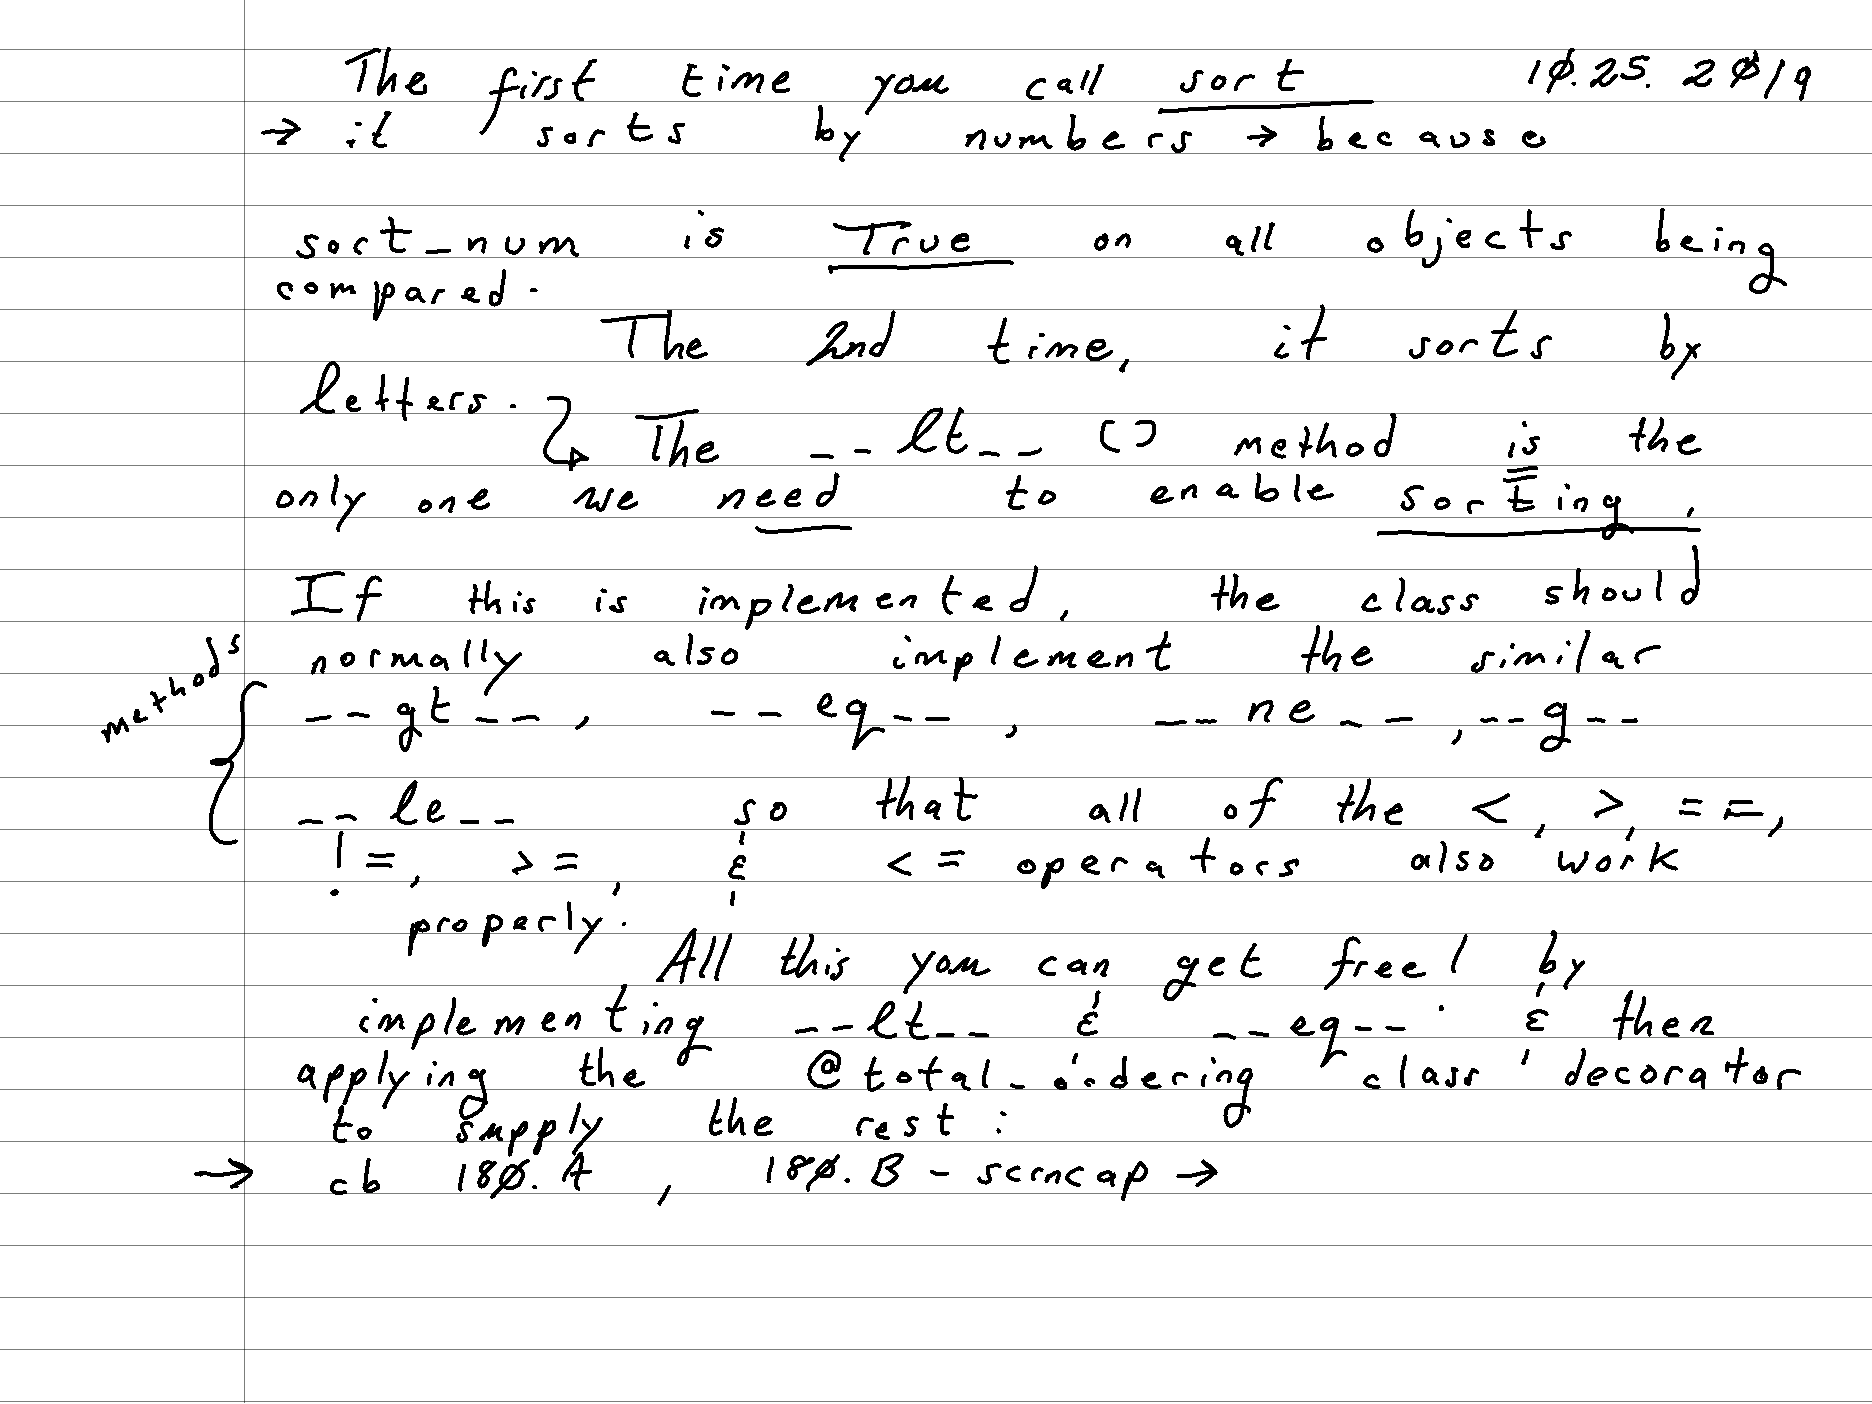 The first time you call sort 10.25.2019
→ it sorts by numbers → because
sort_num is True on all objects being
compared.
The 2nd time, it sorts by
letters.
↳ The __lt__() method is the
only one we need to enable sorting.
If this is implemented, the class should
normally also implement the similar
methods { __gt__, __eq__, __ne__, __g__
__le__ so that all of the <, >, ==,
!=, >=, & <= operators also work
properly.
All this you can get free! by
implementing __lt__ & __eq__ & then
applying the @total_ordering class decorator
to supply the rest:
→ cb 180.A, 180.B - scrncap →